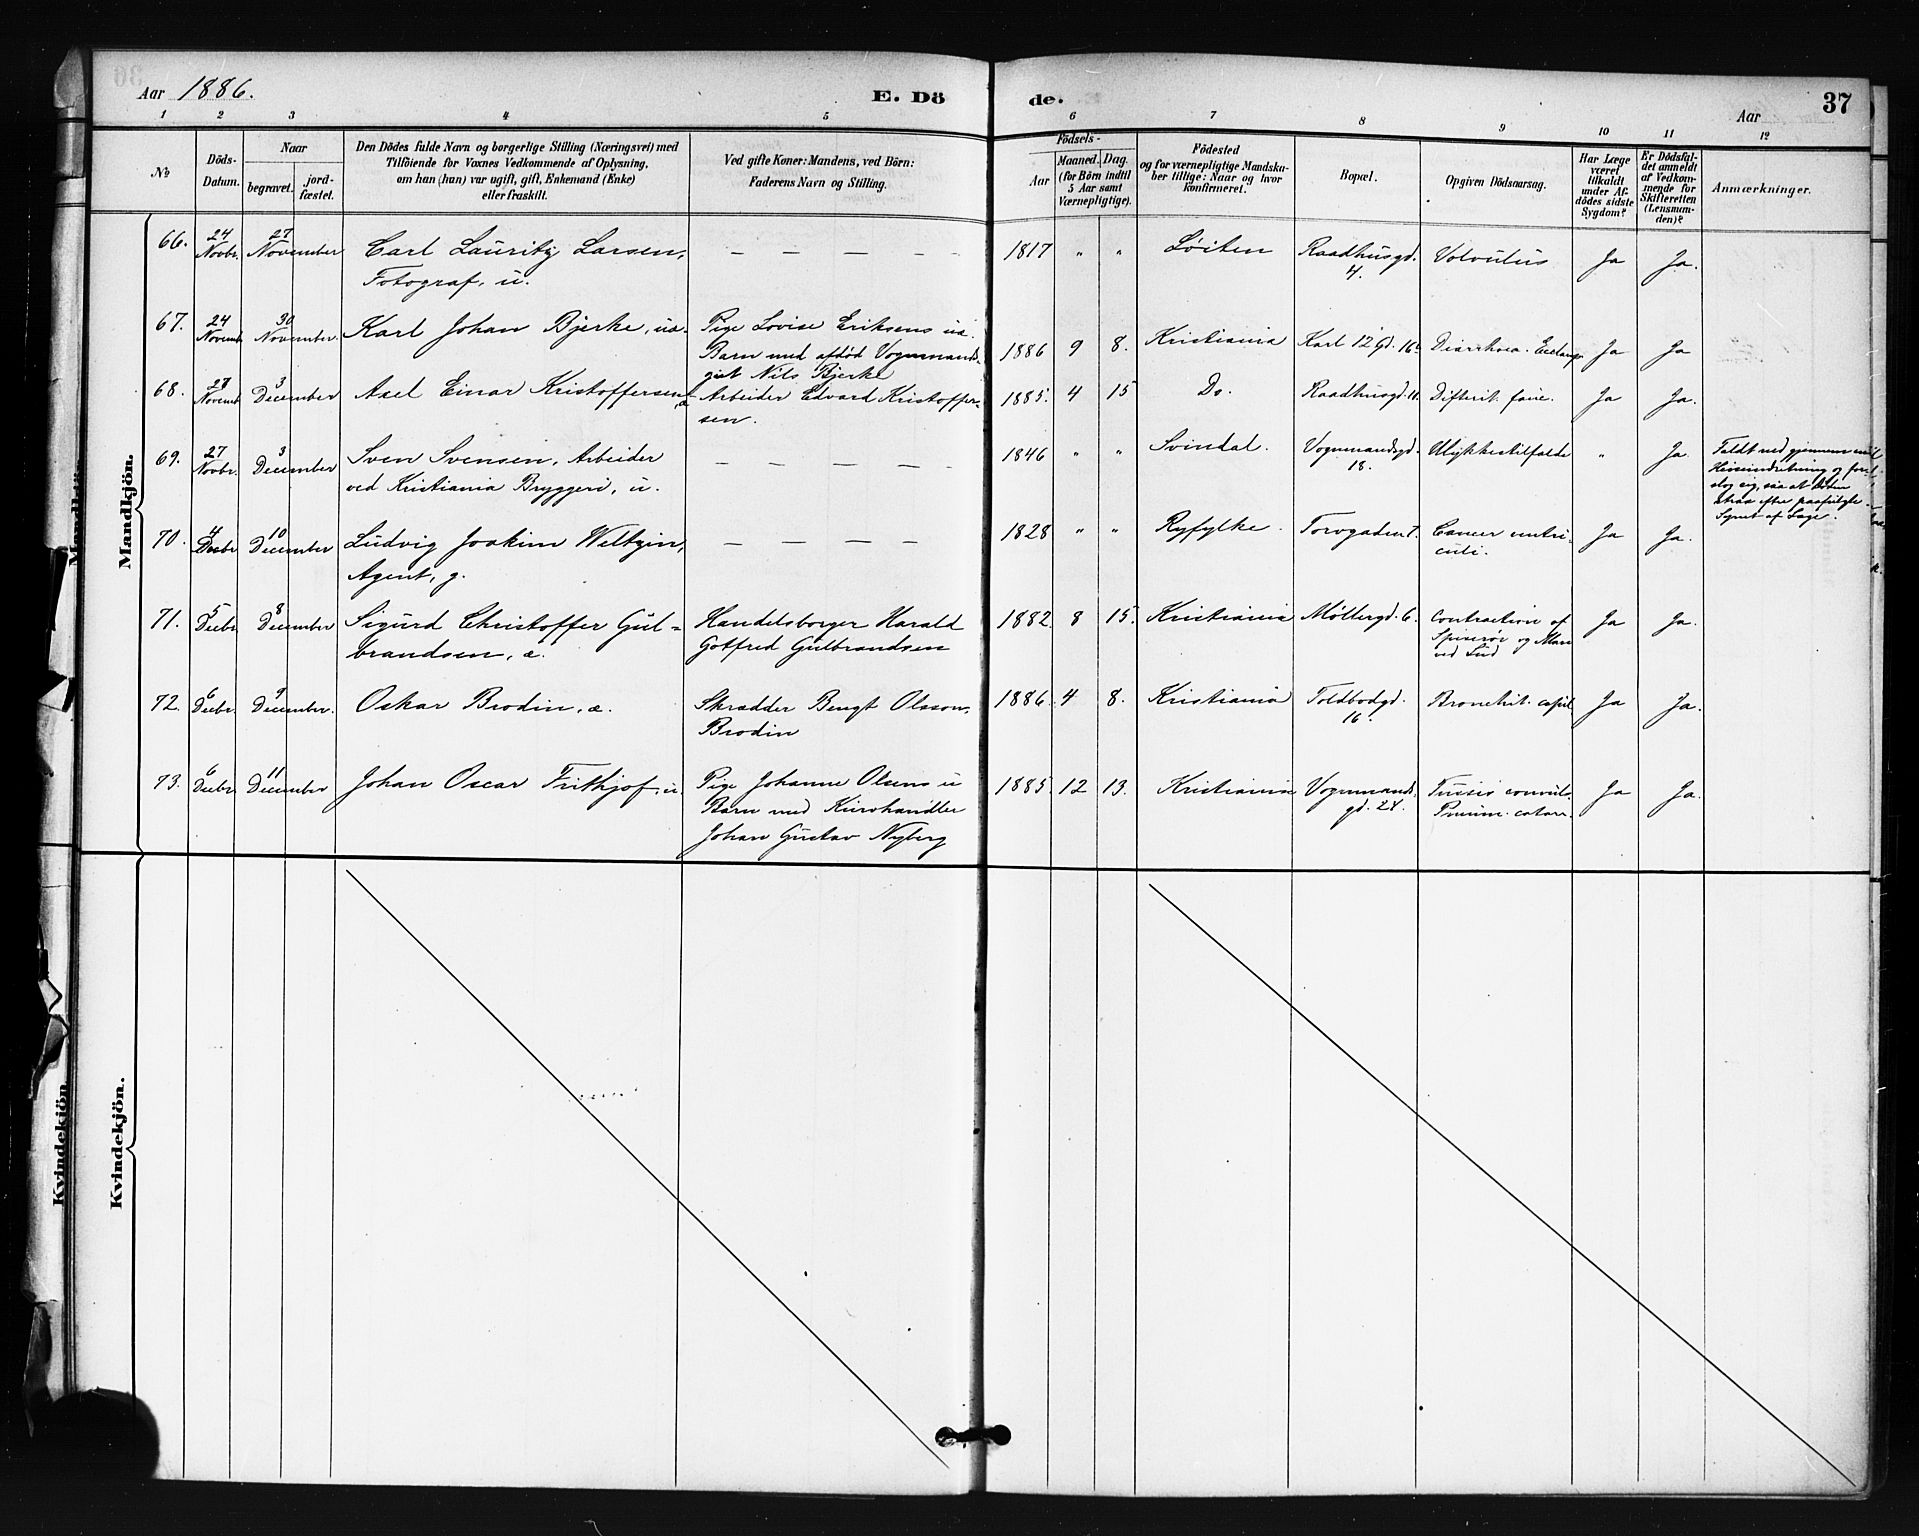 Aar 1886.
E. Dö
de.
Aar
37
1 2 3 4 5 6 7 8 9 10 11 12
№
Döds-
Datum.
Naar
begravet.
jord-
fæstet.
Den Dödes fulde Navn og borgerlige Stilling (Næringsvei) med
Tilföiende for Voxnes Vedkommende af Oplysning,
om han (hun) var ugift, gift, Enkemand (Enke)
eller fraskilt.
Ved gifte Koner: Mandens, ved Börn:
Faderens Navn og Stilling.
Födsels-
Aar
Maaned.
Dag.
(for Börn indtil
5 Aar samt
Værnepligtige).
Födested
og for værnepligtige Mandska-
ber tillige: Naar og hvor
konfirmeret.
Bopæl.
Opgiven Dödsaarsag.
Har Læge
været
tilkaldt
under Af-
dödes sidste
Sygdom?
Er Dödsfal-
det anmeldt
af Vedkom-
mende for
Skifteretten
(Lensman-
den)?
Anmærkninger.
Mandkjön.
66. 24 Novbr. 27 November Carl Lauritz Larsen, — — — — — 1817 " " Löiten Raadhusgd. Volvulus Ja Ja.
Fotograf, u. 4.
67. 24 Novemb. 30 November. Karl Johan Bjerke, uæ. Pige Lovise Eriksens uæ. 1886 9 8. Kristiania Karl 12 Gd. 16 Diarrhoea. Ja Ja
Barn med afdød Vognmands-
gut Nils Bjerke
68. 27 Novemb. 3 December Axel Einar Kristoffersen, æ Arbeider Edvard Kristoffer- 1885. 4 15 Do. Raadhusgd. 11. Difterit. Ja Ja.
sen.
69. 27 Novbr. 3 December Sven Svensen, Arbeider — — — — — 1846 " " Svindal. Vognmandsgd. Ulykkestilfælde " Ja. Faldt ned gjennem
ved Kristiania Bryggeri, u. 18. Heiseindretning og for-
slog sig, saa at Döden
strax efter paafulgte.
Synet af Læge.
70. 4 Decbr. 10 December Ludvig Joakim Welhzin, — — — — 1828 " " Ryfylke. Torvgaden 7. Cancer ventri- Ja Ja.
Agent, g. culi.
71. 5 Decbr. 8 December Sigurd Christoffer Gul= Handelsborger Harald 1882. 8 15. Kristiania Möllergd. 6. Contraction af Ja Ja.
brandsen, æ. Gotfred Gulbrandsen Spiserör og Mave
ved Lud
72. 6 Decbr. 9 December. Oskar Brodin, æ. Skrædder Bengt Olsson 1886. 4 8. Kristiania Toldbodgd. Bronchit. capil Ja Ja.
Brodin 16.
73. 6 Decbr. 11 December Johan Oscar Frithjof, u. Pige Johanne Olsens u 1885. 12 13. Kristiania Vognmands- Tussis convuls. Ja Ja.
Barn med Kurvhandler gd. 24. Pneum. catarr.
Johan Gustav Nyberg
Kvindekjön.
Mandkjön
Kvindekjön